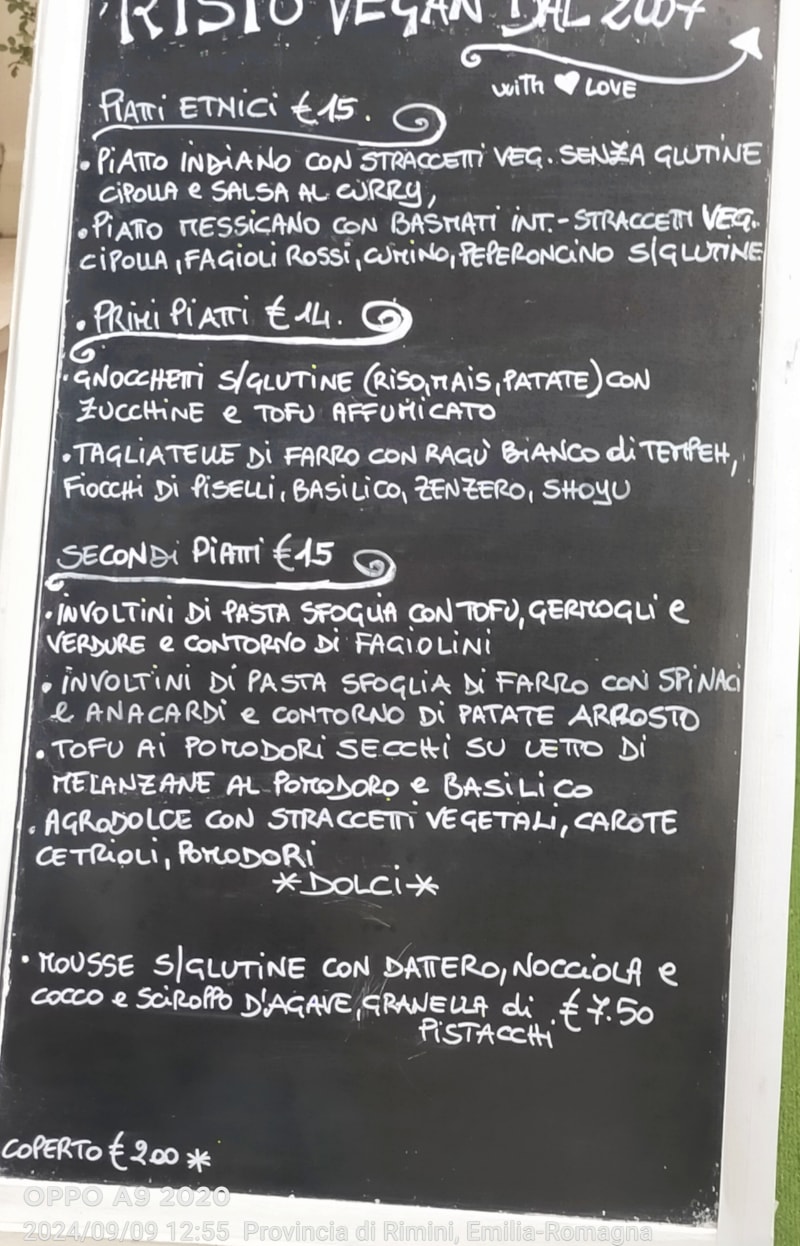 RISTO VEGAN DAL 2007
with ♥ LOVE
PIATTI ETNICI € 15.
• PIATTO INDIANO CON STRACCETTI VEG. SENZA GLUTINE
CIPOLLA e SALSA AL CURRY,
• PIATTO MESSICANO CON BASMATI INT.- STRACCETTI VEG.
CIPOLLA, FAGIOLI ROSSI, CUMINO, PEPERONCINO S/GLUTINE
• PRIMI PIATTI € 14.
• GNOCCHETTI S/GLUTINE (RISO, MAIS, PATATE) CON
ZUCCHINE e TOFU AFFUMICATO
• TAGLIATELLE DI FARRO CON RAGÙ BIANCO di TEMPEH,
FIOCCHI DI PISELLI, BASILICO, ZENZERO, SHOYU
SECONDI PIATTI € 15
• INVOLTINI DI PASTA SFOGLIA CON TOFU, GERMOGLI e
VERDURE e CONTORNO DI FAGIOLINI
• INVOLTINI DI PASTA SFOGLIA DI FARRO CON SPINACI
e ANACARDI e CONTORNO DI PATATE ARROSTO
• TOFU AI POMODORI SECCHI SU LETTO DI
MELANZANE AL POMODORO e BASILICO
• AGRODOLCE CON STRACCETTI VEGETALI, CAROTE
CETRIOLI, POMODORI
*DOLCI*
• MOUSSE S/GLUTINE CON DATTERO, NOCCIOLA e
COCCO e SCIROPPO D'AGAVE, GRANELLA di € 7.50
PISTACCHI
COPERTO € 2.00 *
OPPO A9 2020
2024/09/09 12:55 Provincia di Rimini, Emilia-Romagna